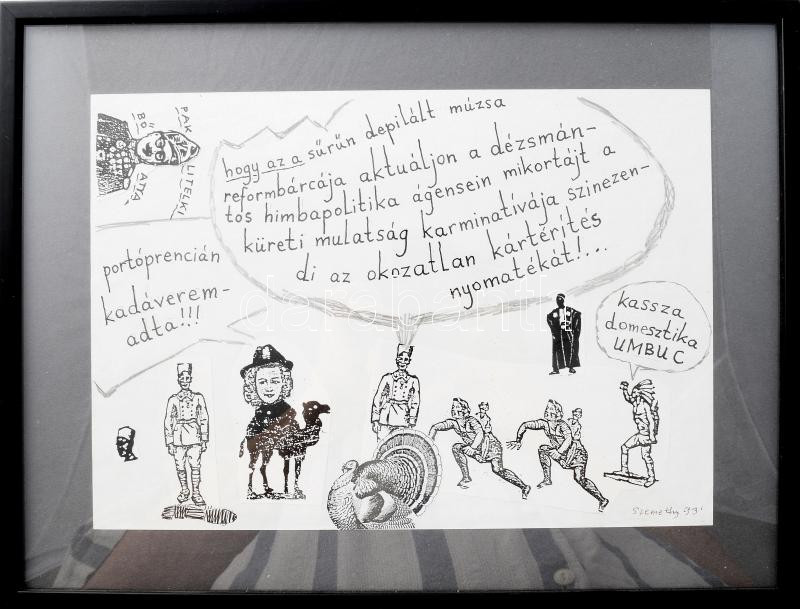 PÁK
BŐ
ATA
LITELKI
hogy az a sűrűn depilált múzsa
reformbárcája aktuáljon a dézsmán-
tos himbapolitika ágensein mikortájt a
küreti mulatság karminatívája szinezen-
di az okozatlan kártérítés
nyomatékát!...
portóprencián
kadáverem-
adta!!!
kassza
domesztika
UMBUC
Szemethy 93'
darabanth